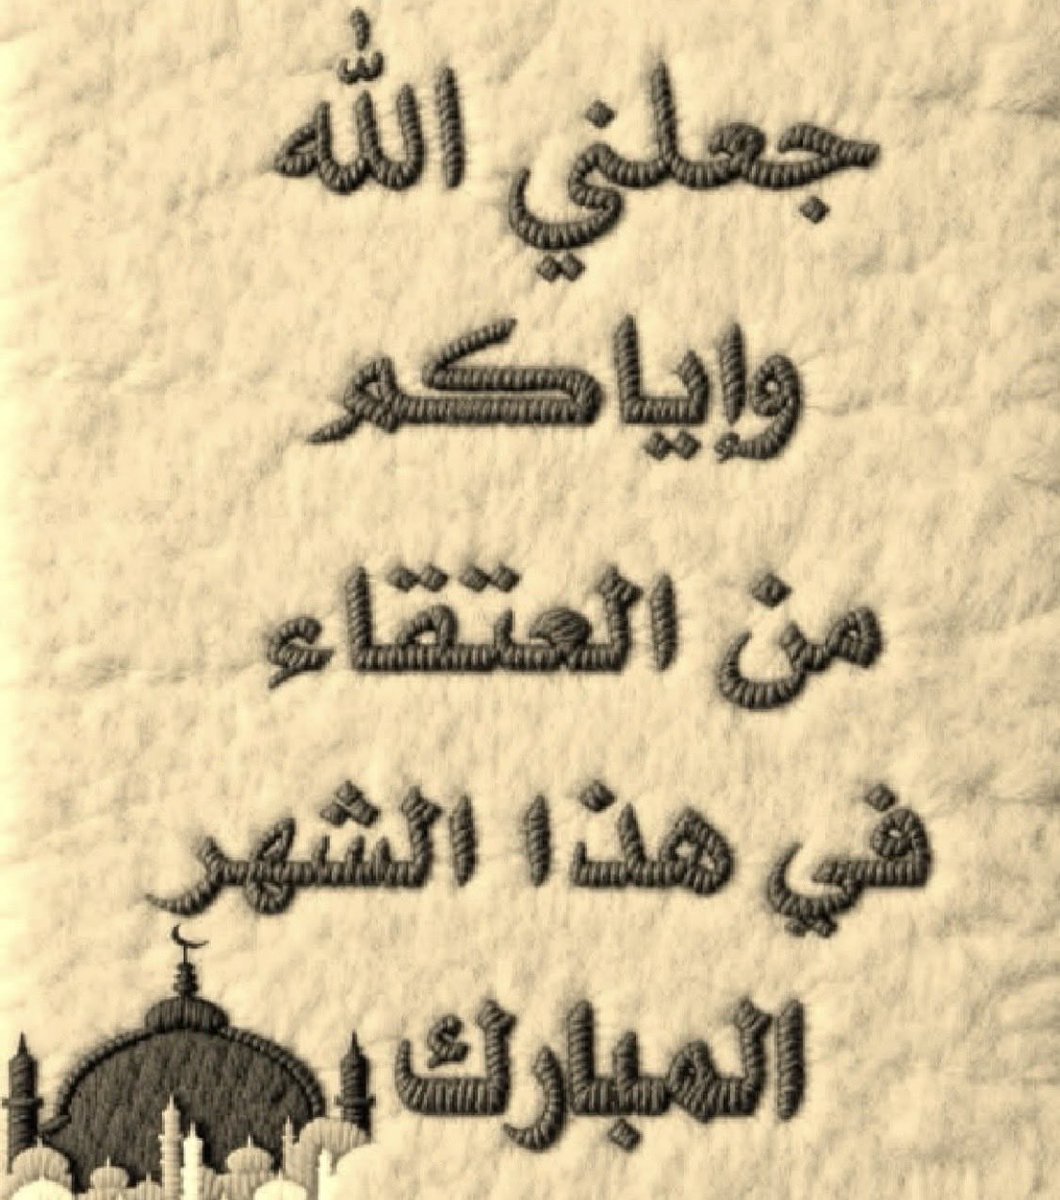 جعلني الله
وإياكم
من العتقاء
في هذا الشهر
المبارك